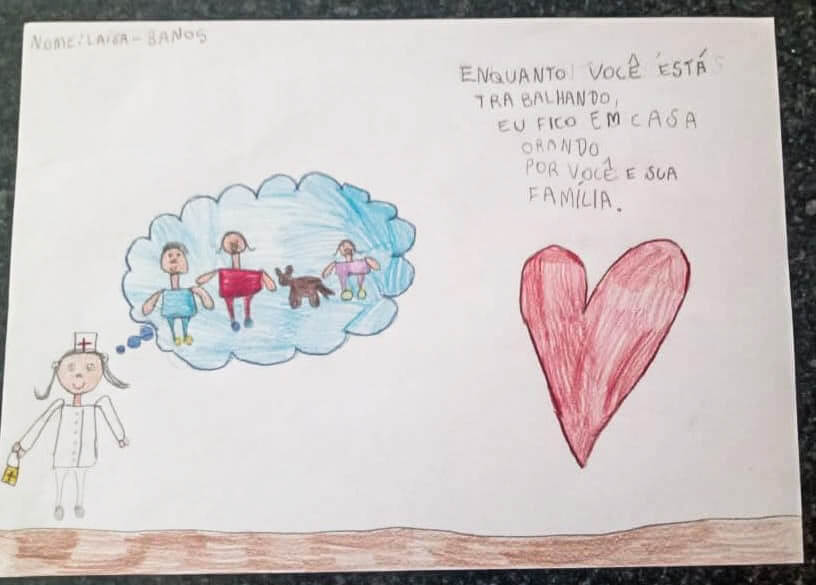 NOME: LAISA - 8 ANOS
ENQUANTO VOCÊ ESTÁ
TRABALHANDO,
EU FICO EM CASA
ORANDO
POR VOCÊ E SUA
FAMÍLIA.